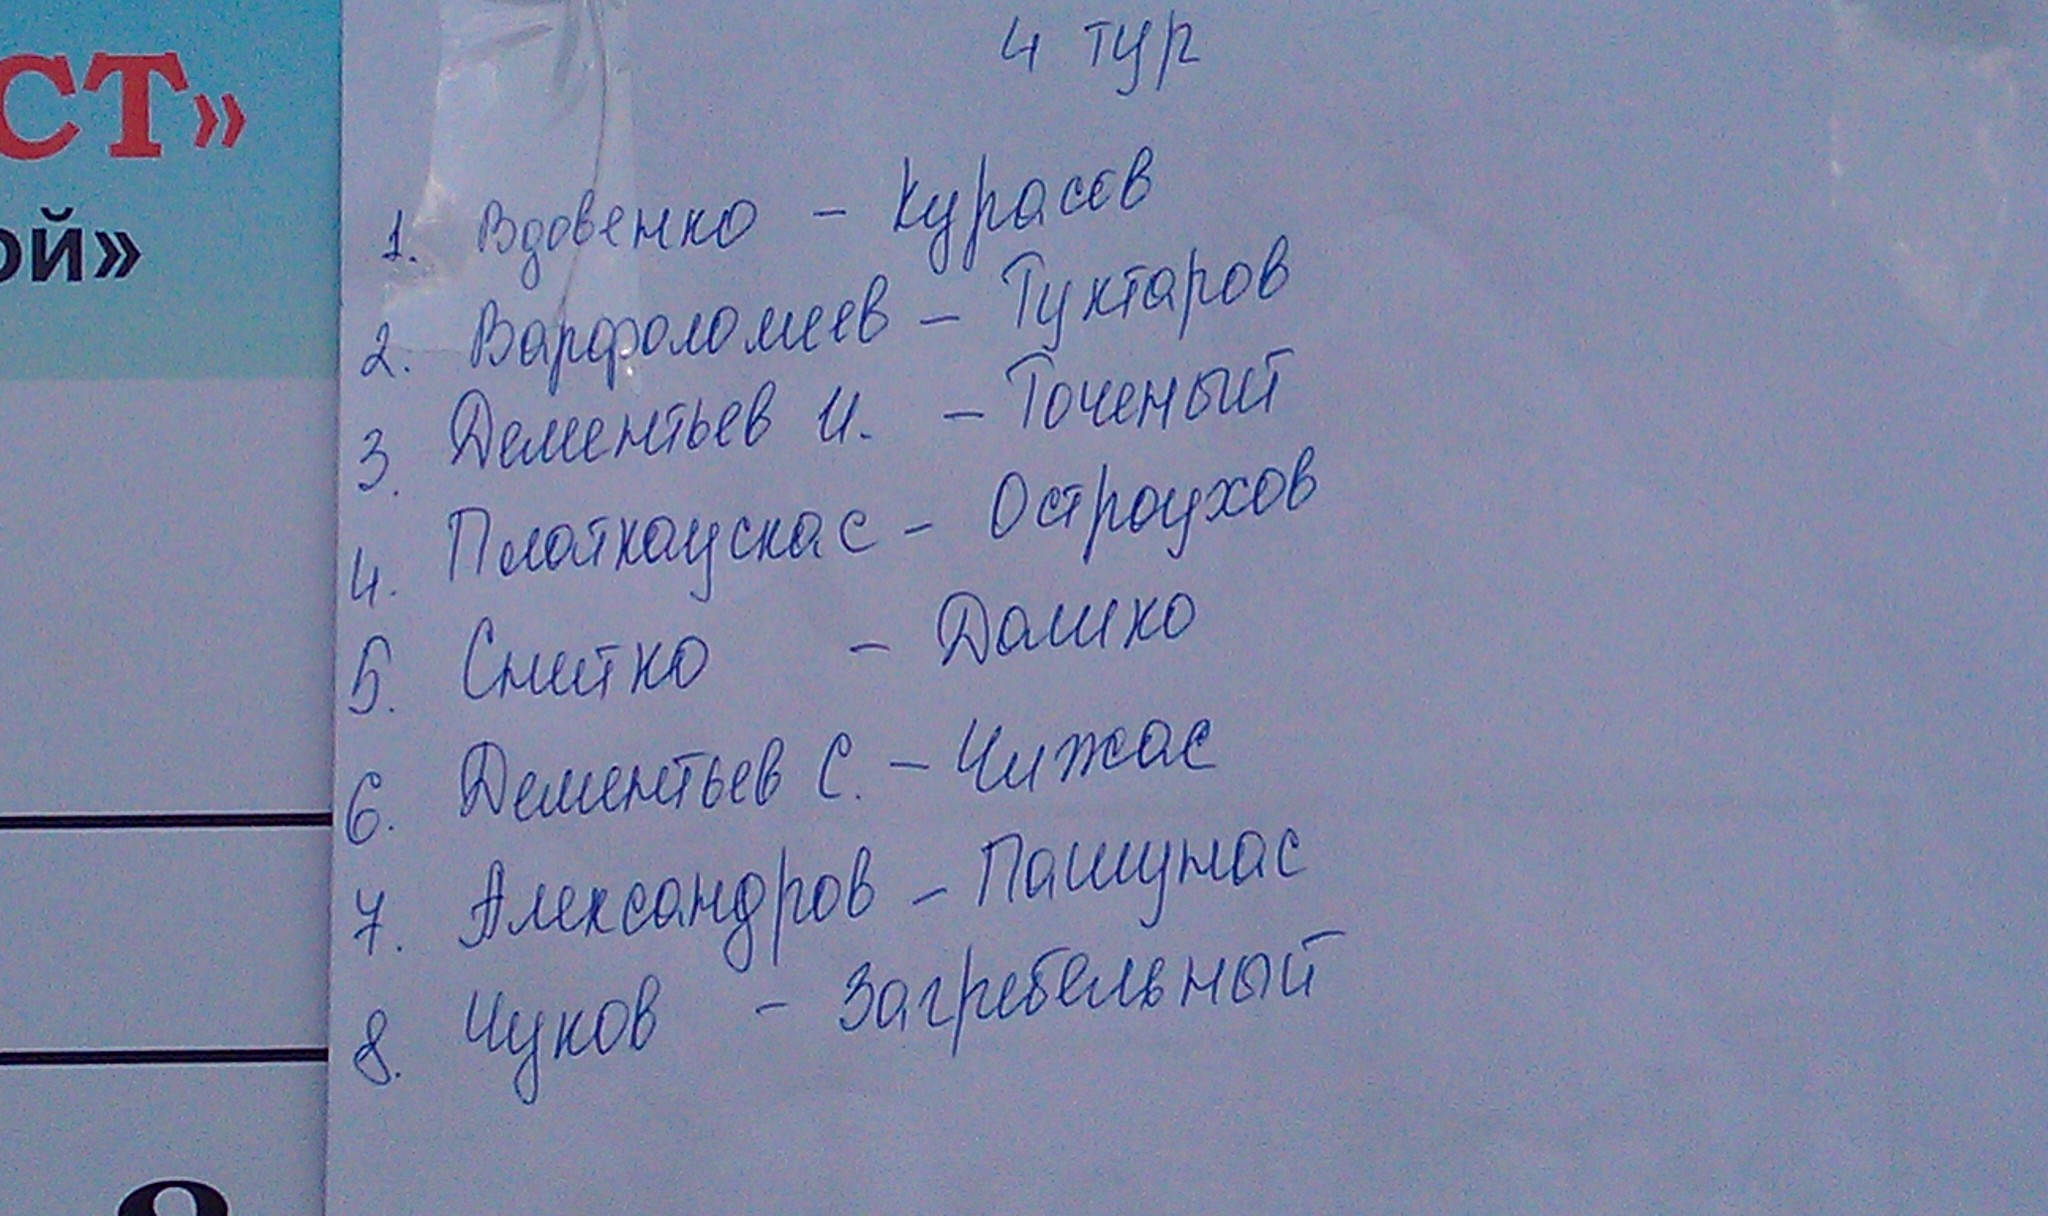 СТ»
ой»
4 тур
1. Вдовенко - Курасов
2. Варфоломеев - Туктаров
3. Дементьев И. - Точеный
4. Платкаускас - Остроухов
5. Снитко - Дашко
6. Дементьев С. - Чижас
7. Александров - Пашунас
8. Чуков - Загребельный